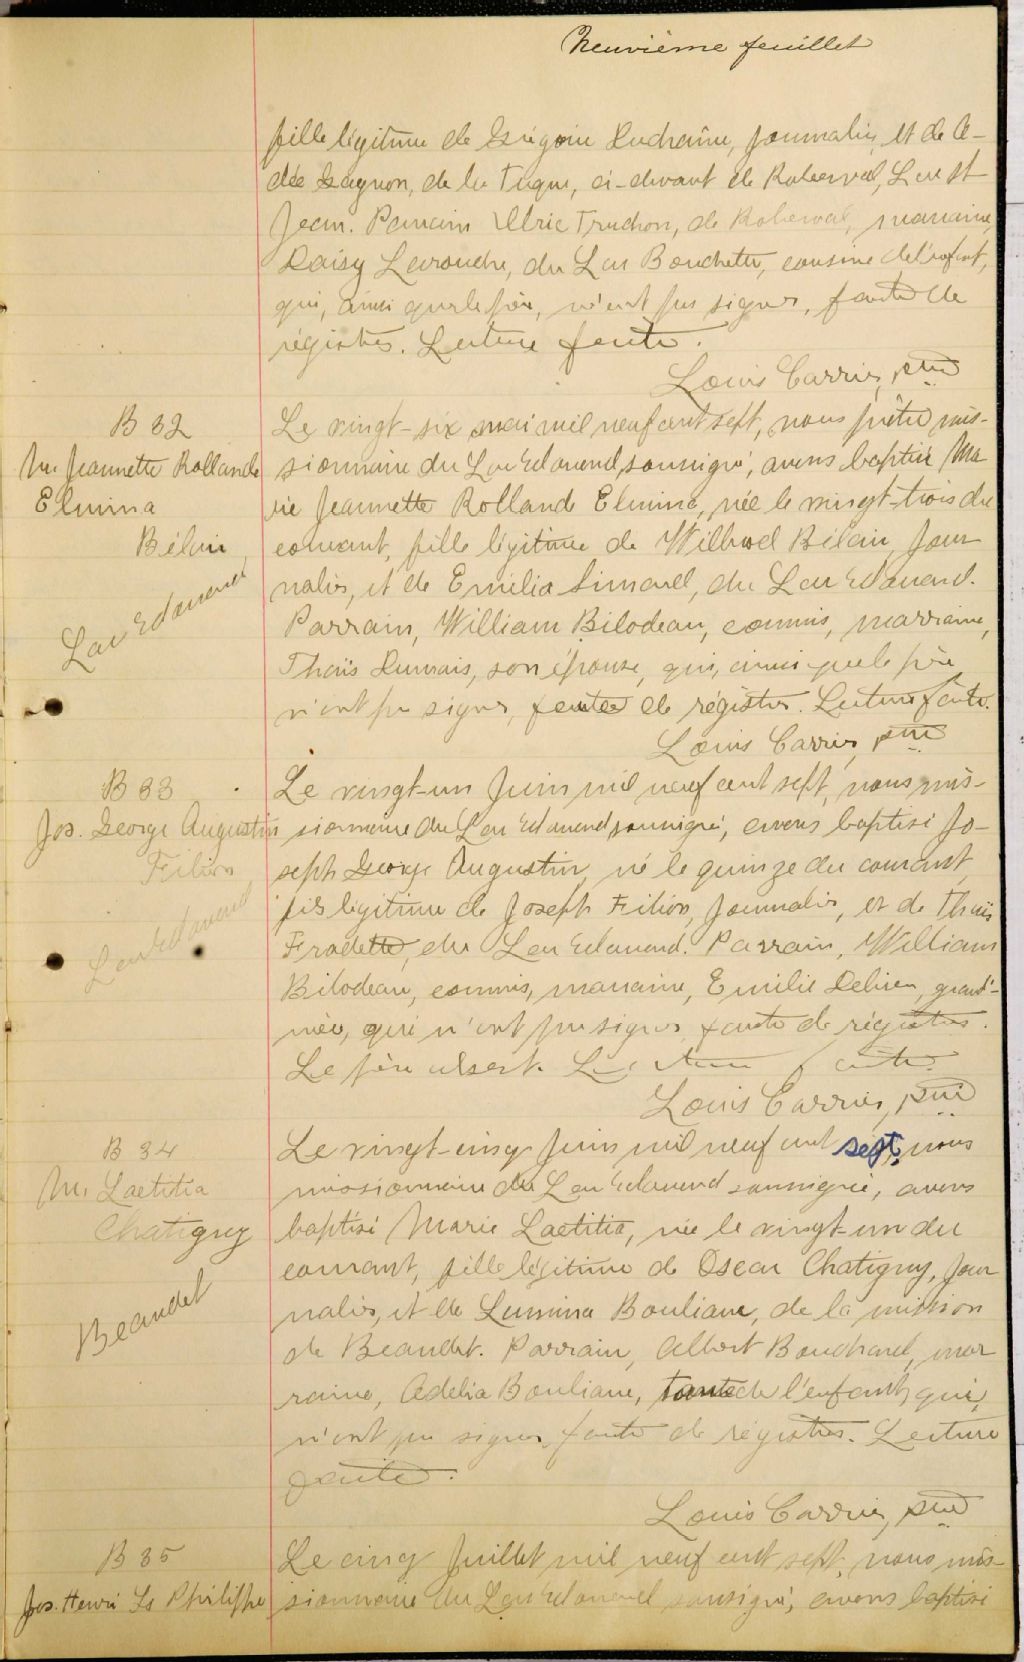 Neuvième feuillet
fille légitime de Grégoire Duchaîne, journalier, et de A-
dée Gagnon, de la Tuque, ci-devant de Roberval, Lac St
Jean. Parrain Ulric Truchon, de Roberval, marraine,
Daisy Larouche, du Lac Bouchette, cousine de l'enfant,
qui, ainsi que le père, n'ont pu signer, faute de
régistres. Lecture faite.
Louis Carrier, ptre
B 32
M. Jeannette Rollande
Elmina
Bélair
Lac Edouard
Le vingt-six mai mil neuf cent sept, nous prêtre mis-
sionnaire du Lac Edouard, soussigné, avons baptisé Ma
rie Jeannette Rolland Elmina, née le vingt-trois du
courant, fille légitime de Wilbrod Bélair, jour
nalier, et de Emilia Simard, du Lac Edouard.
Parrain, William Bilodeau, commis, marraine,
Thaïs Dumais, son épouse, qui, ainsi que le père
n'ont pu signer, faute de régistres. Lecture faite.
Louis Carrier, ptre
B 33
Jos. George Augustin
Filion
Lac Edouard
Le vingt-un Juin mil neuf cent sept, nous mis-
sionnaire du Lac Edouard soussigné, avons baptisé Jo-
seph George Augustin, né le quinze du courant,
fils légitime de Joseph Filion, journalier, et de Thaïs
Fradette, du Lac Edouard. Parrain, William
Bilodeau, commis, marraine, Emilie grand'-
mère, qui n'ont pu signer, faute de régistres.
Le père absent. Lecture faite.
Louis Carrier, ptre
B 34
M. Laetitia
Chatigny
Beaudet
Le vingt-cinq Juin mil neuf cent sept, nous
missionnaire du Lac Edouard soussigné, avons
baptisé Marie Laetitia, née le vingt-un du
courant, fille légitime de Oscar Chatigny, jour
nalier, et de Lumina Bouliane, de la mission
de Beaudet. Parrain, Albert Bouchard, mar
raine, Adelia Bouliane, tante de l'enfant, qui,
n'ont pu signer, faute de régistres. Lecture
faite.
Louis Carrier, ptre
B 35
Jos. Henri Ls Philippe
Le cinq Juillet mil neuf cent sept, nous mis-
sionnaire du Lac Edouard soussigné, avons baptisé